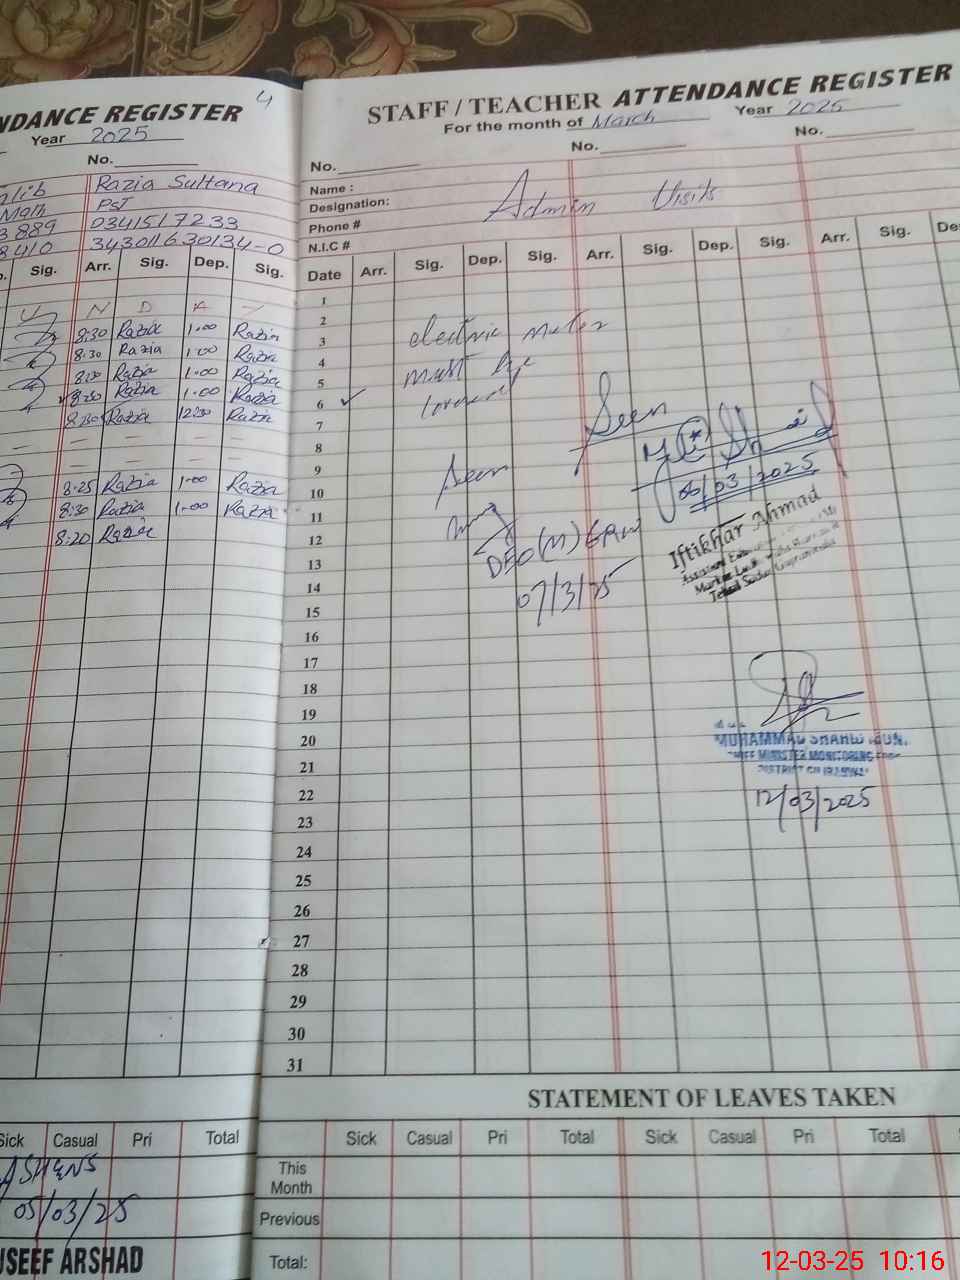 NDANCE REGISTER 4
Year 2025
No.
Razia Sultana
Math PST
3889 0341517233
8410 343011630134-0
Sig. Arr. Sig. Dep. Sig.
U N D A Y
8:30 Razia 1:00 Razia
8:30 Razia 1:00 Razia
8:30 Razia 1:00 Razia
8:30 Razia 1:00 Razia
8:30 Razia 12:30 Razia
— — — —
— — — —
8:25 Razia 1:00 Razia
8:30 Razia 1:00 Razia
8:20 Razia
Sick Casual Pri Total
05/03/25
USEEF ARSHAD
STAFF / TEACHER ATTENDANCE REGISTER
For the month of March Year 2025
No. No. No.
Name :
Designation: Admin Visits
Phone #
N.I.C #
Date Arr. Sig. Dep. Sig. Arr. Sig. Dep. Sig. Arr. Sig. De
1
2
3 electric meter
4
5 must be
6
7
8 Seen
9
10 Seen
06/03/2025
11
12 Iftikhar Ahmad
13 DEO (M)
14
15 07/3/25
16
17
18
19
20
MUHAMMAD
21 CHIEF MINISTER MONITORING
DISTRICT
22 12/03/2025
23
24
25
26
27
28
29
30
31
STATEMENT OF LEAVES TAKEN
Sick Casual Pri Total Sick Casual Pri Total
This
Month
Previous
Total:
12-03-25 10:16